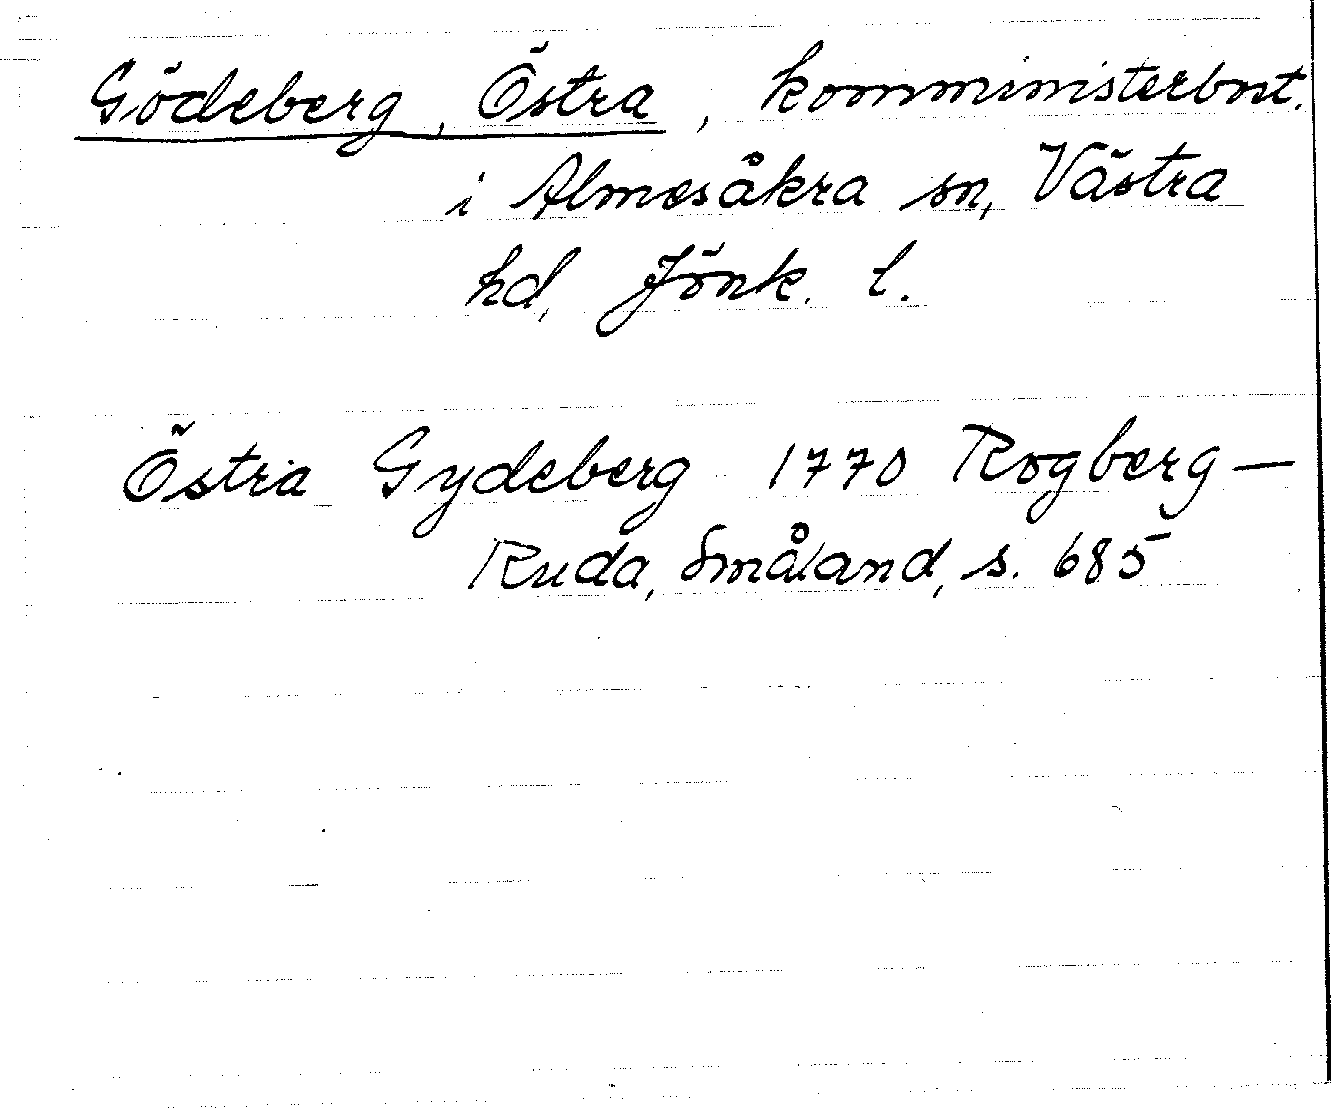 Gödeberg, Östra, komministerbost.
i Almesåkra sn, Västra
hd, Jönk. l.
Östra Gydeberg 1770 Rogberg—
Ruda, Småland, s. 685